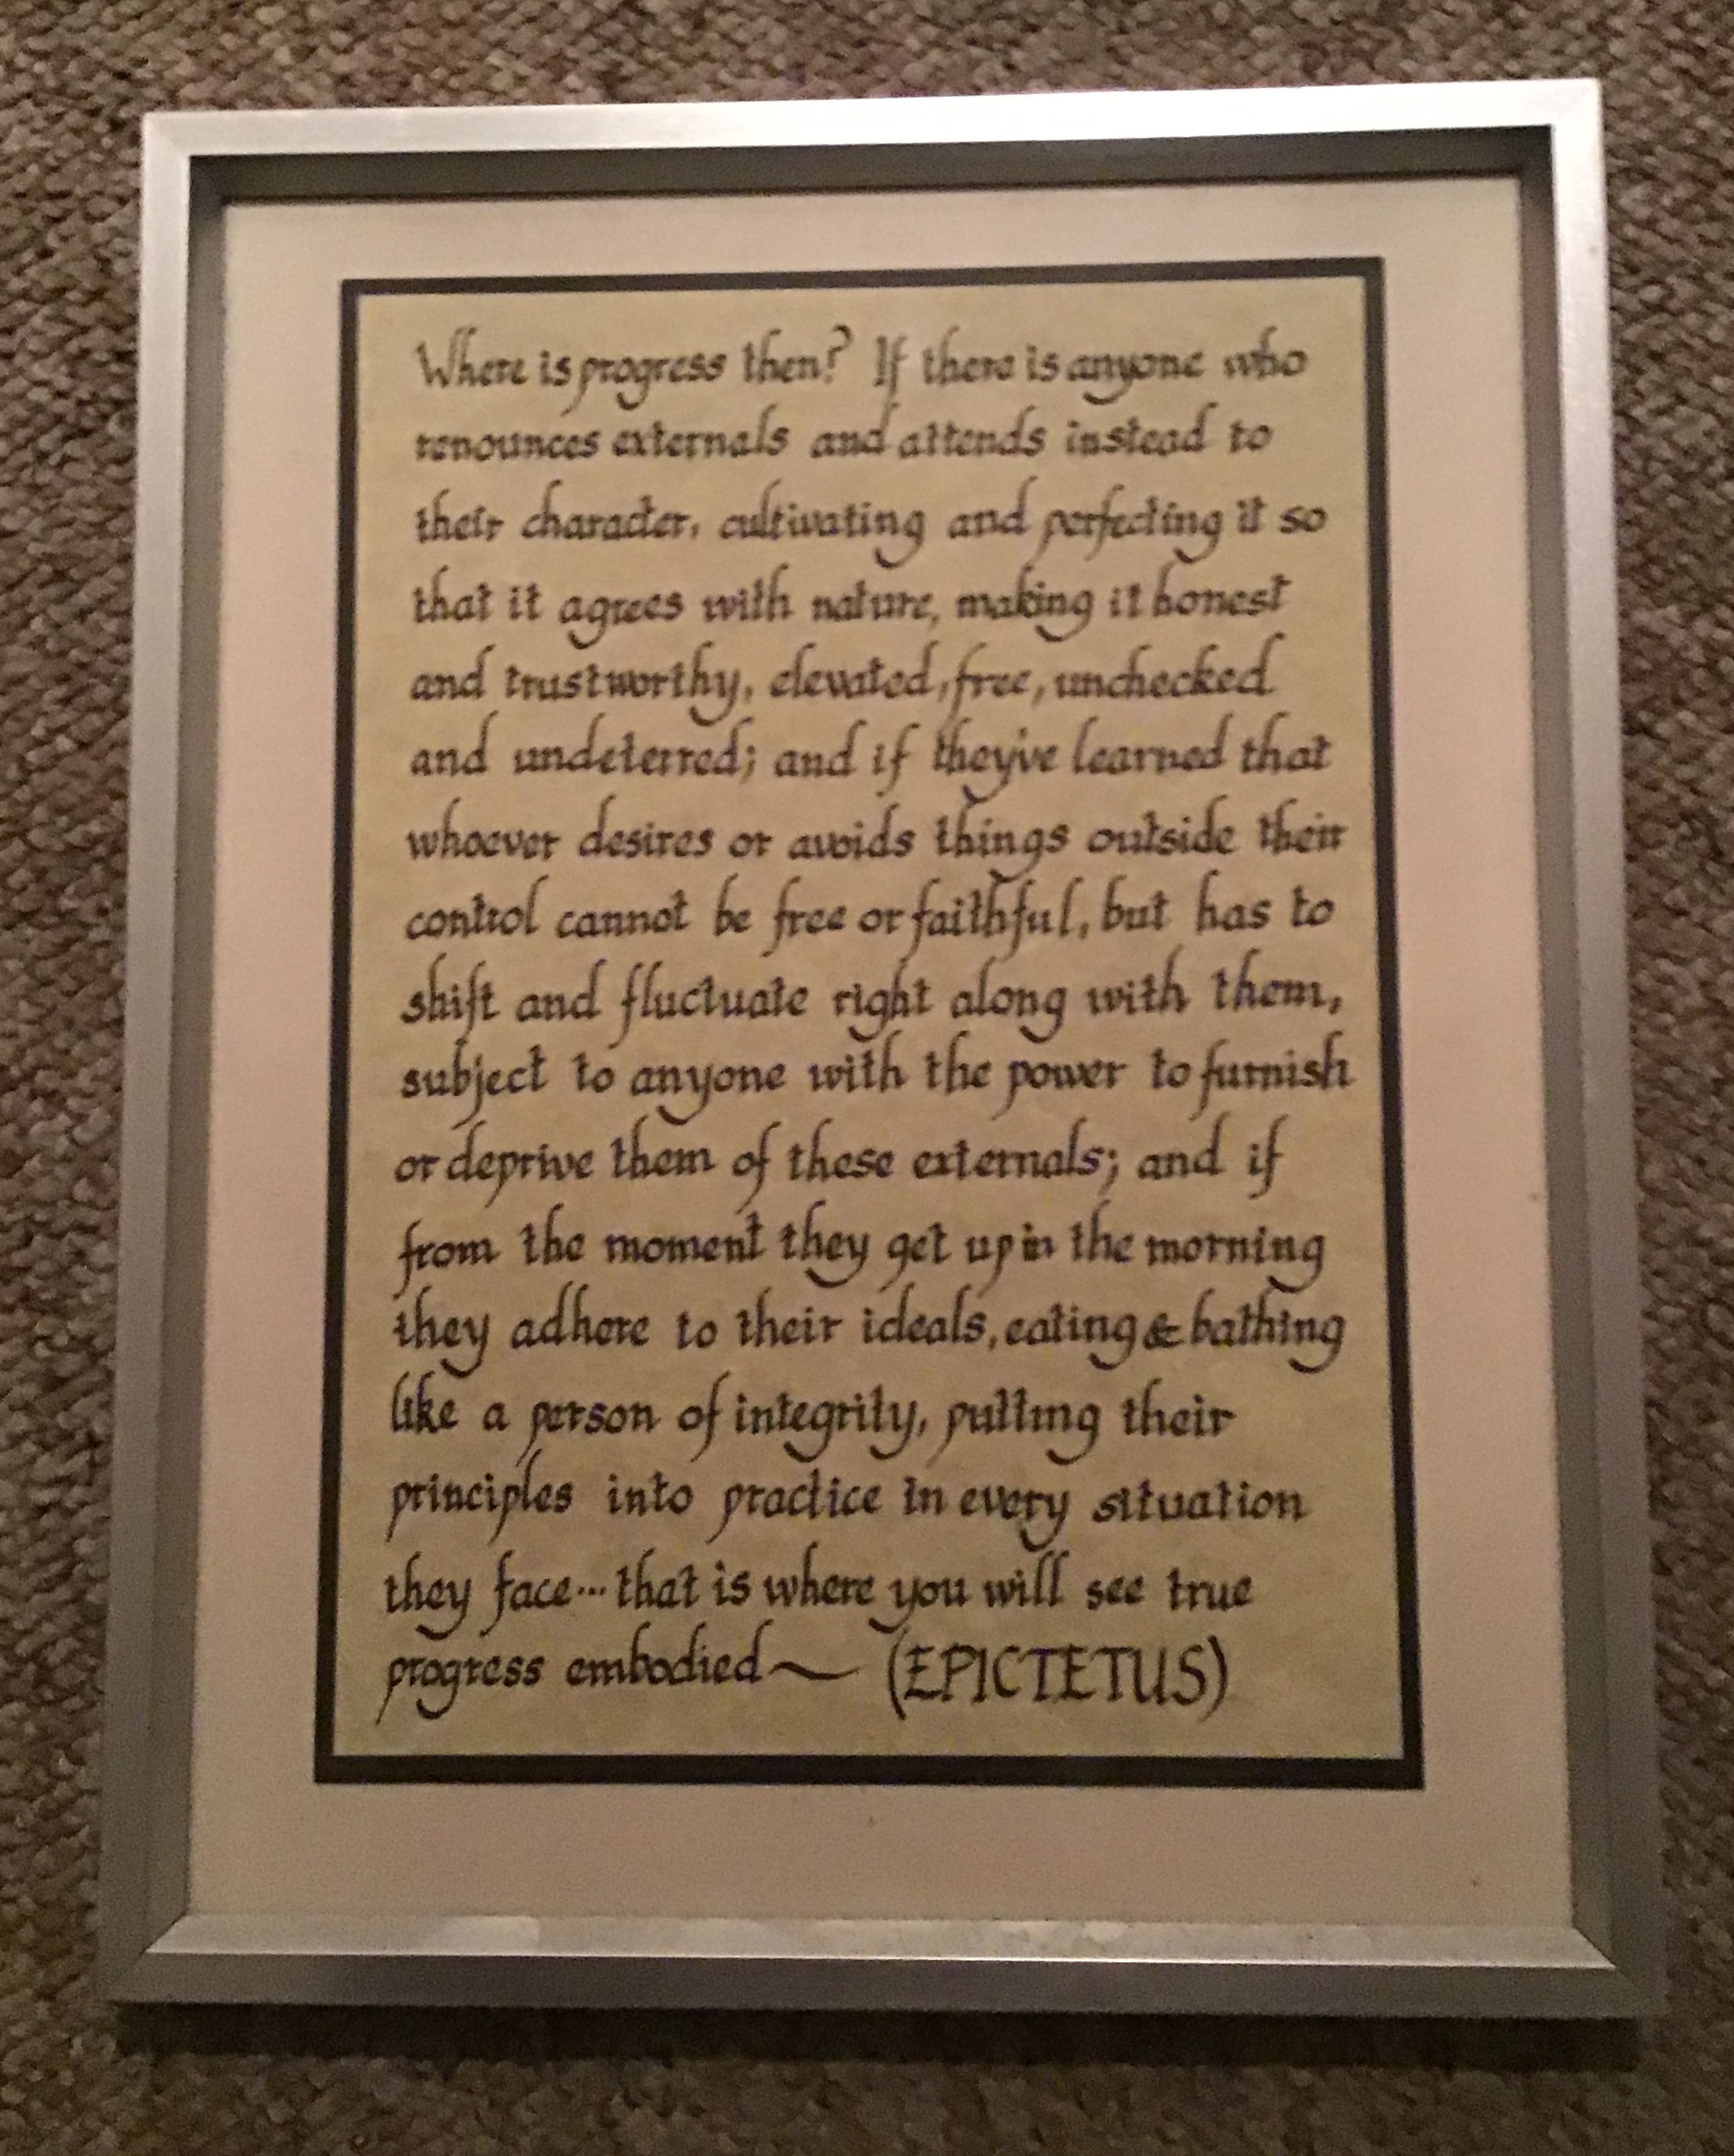 Where is progress then? If there is anyone who
renounces externals and attends instead to
their character, cultivating and perfecting it so
that it agrees with nature, making it honest
and trustworthy, elevated, free, unchecked
and undeterred; and if they've learned that
whoever desires or avoids things outside their
control cannot be free or faithful, but has to
shift and fluctuate right along with them,
subject to anyone with the power to furnish
or deprive them of these externals; and if
from the moment they get up in the morning
they adhere to their ideals, eating & bathing
like a person of integrity, putting their
principles into practice in every situation
they face... that is where you will see true
progress embodied~ (EPICTETUS)